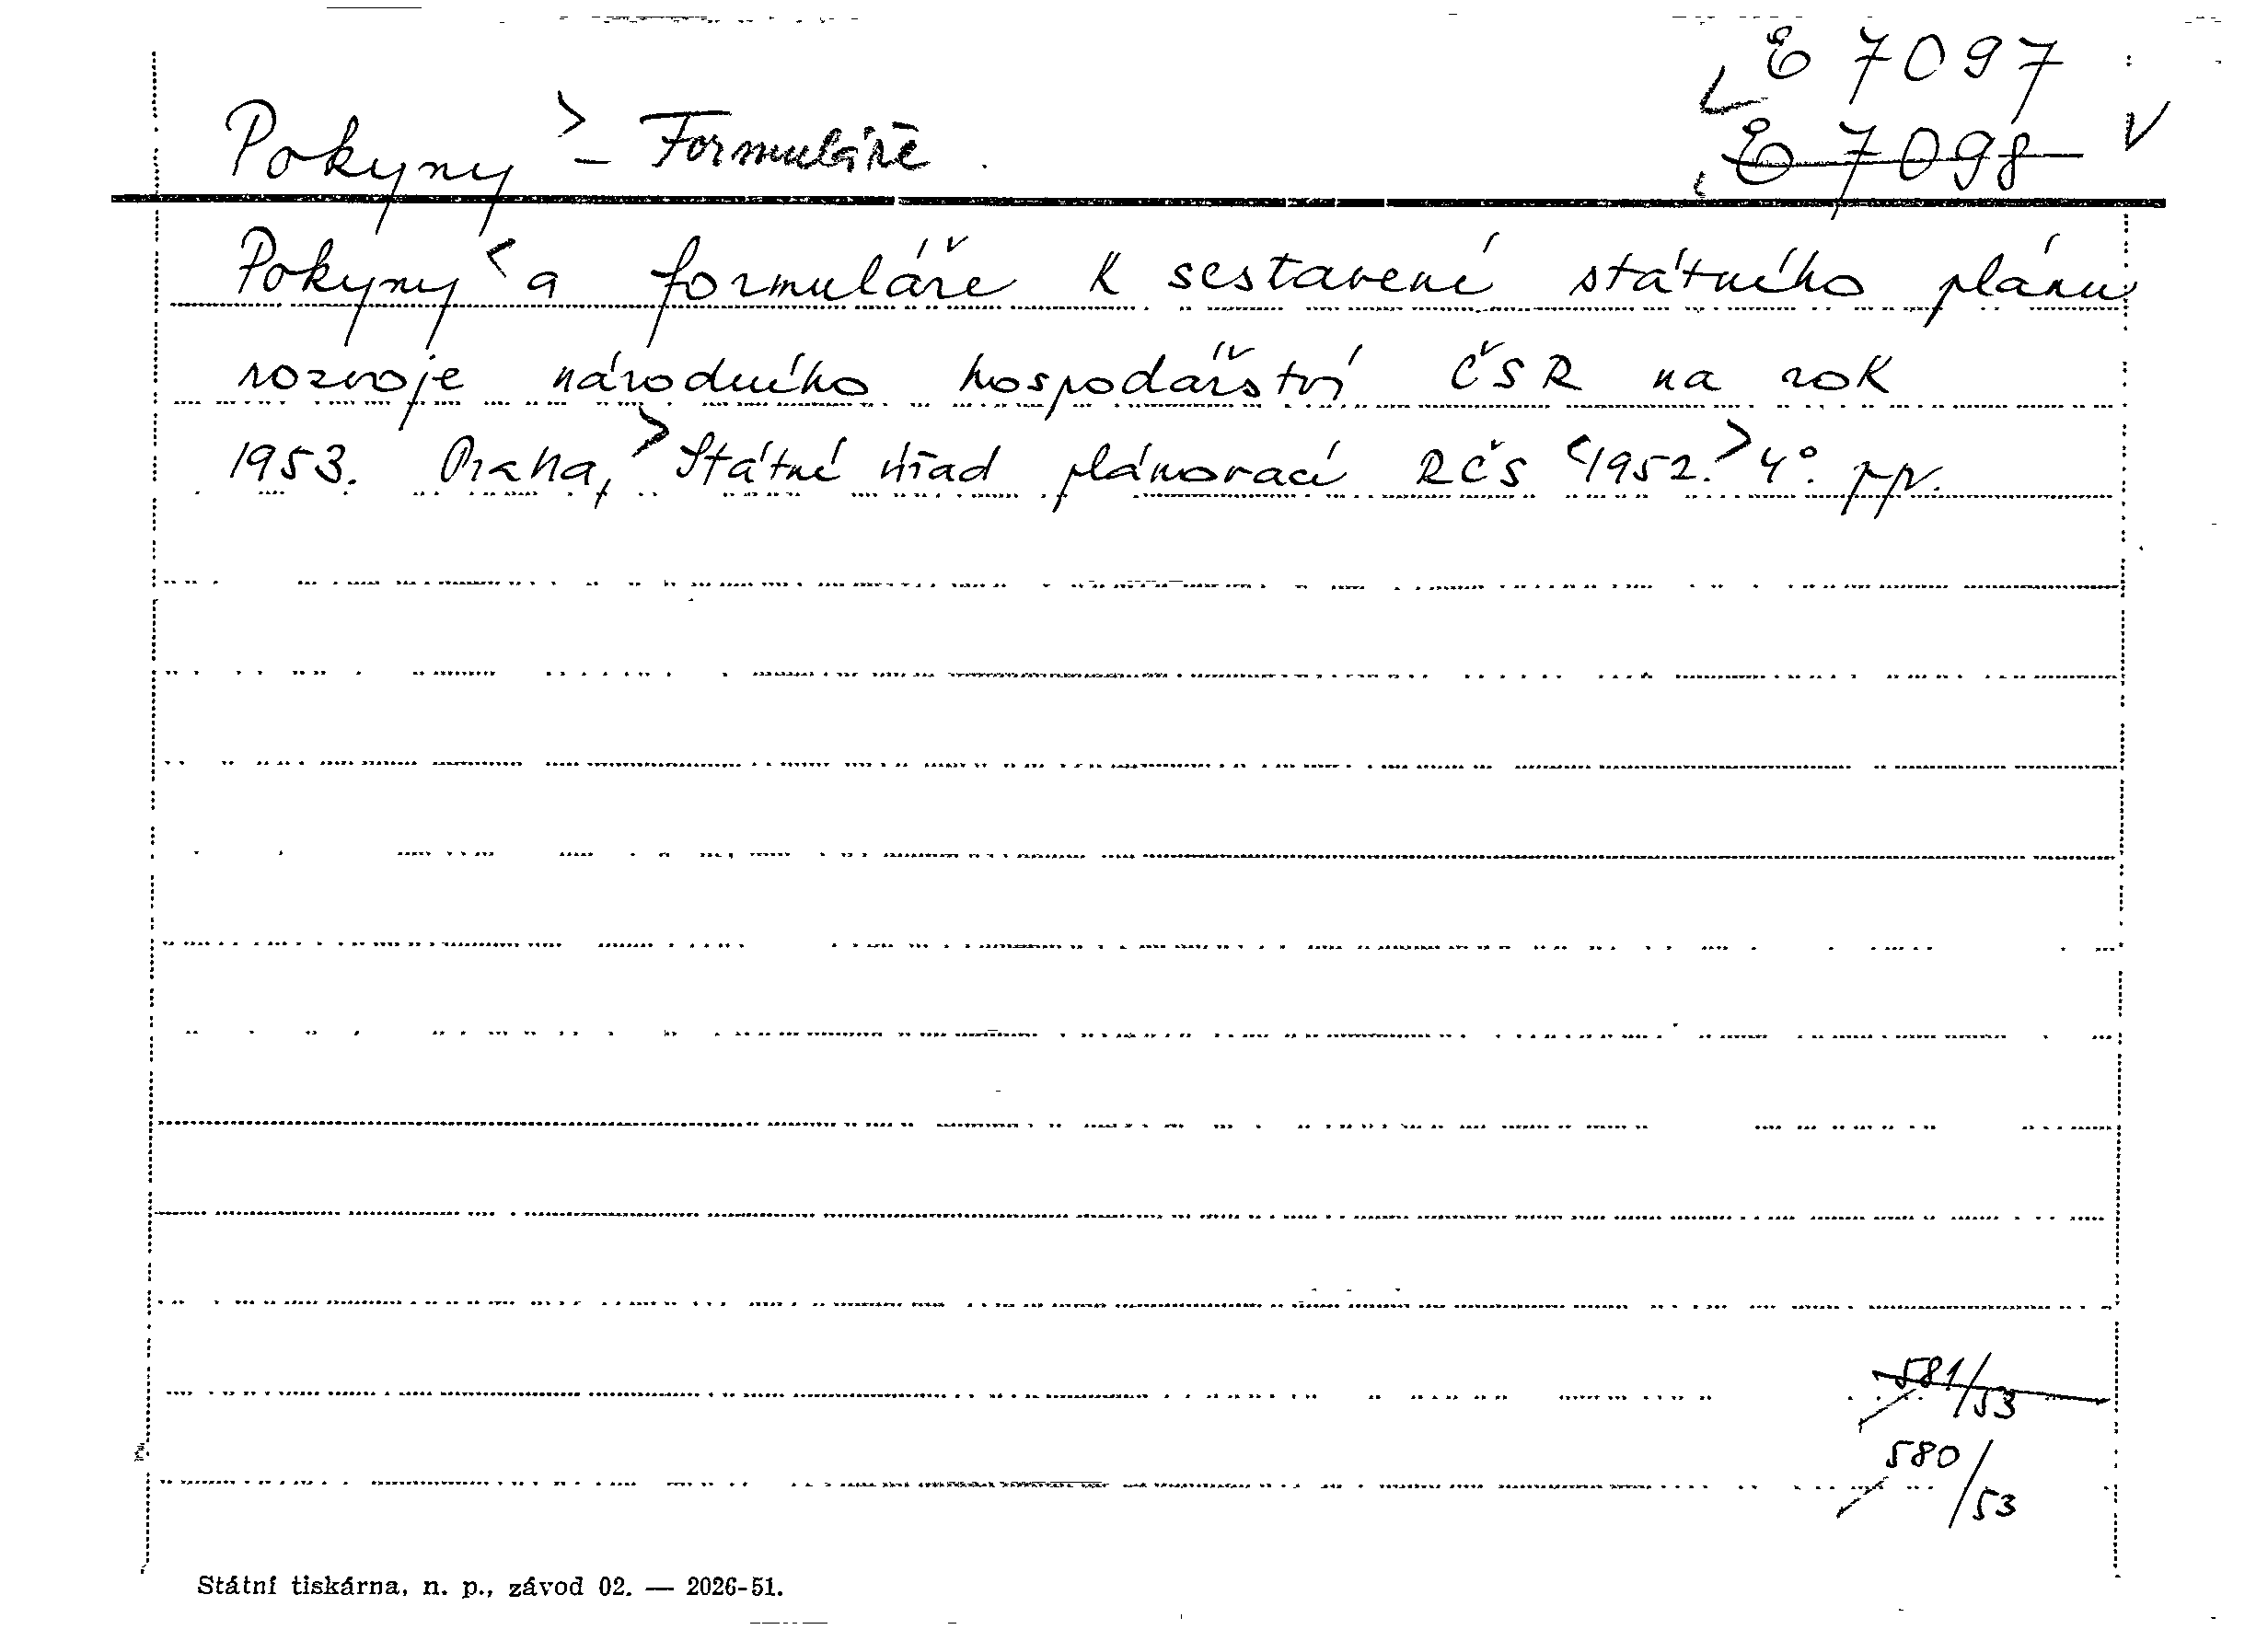 E 7097
Pokyny > - Formuláře.
E 7098 V
Pokyny < a formuláře k sestavení státního plánu
rozvoje národního hospodářství ČSR na rok
1953. Praha, > Státní úřad plánovací RČS < 1952. > 4°. pp.
581/53
580/53
Státní tiskárna, n. p., závod 02. — 2026-51.